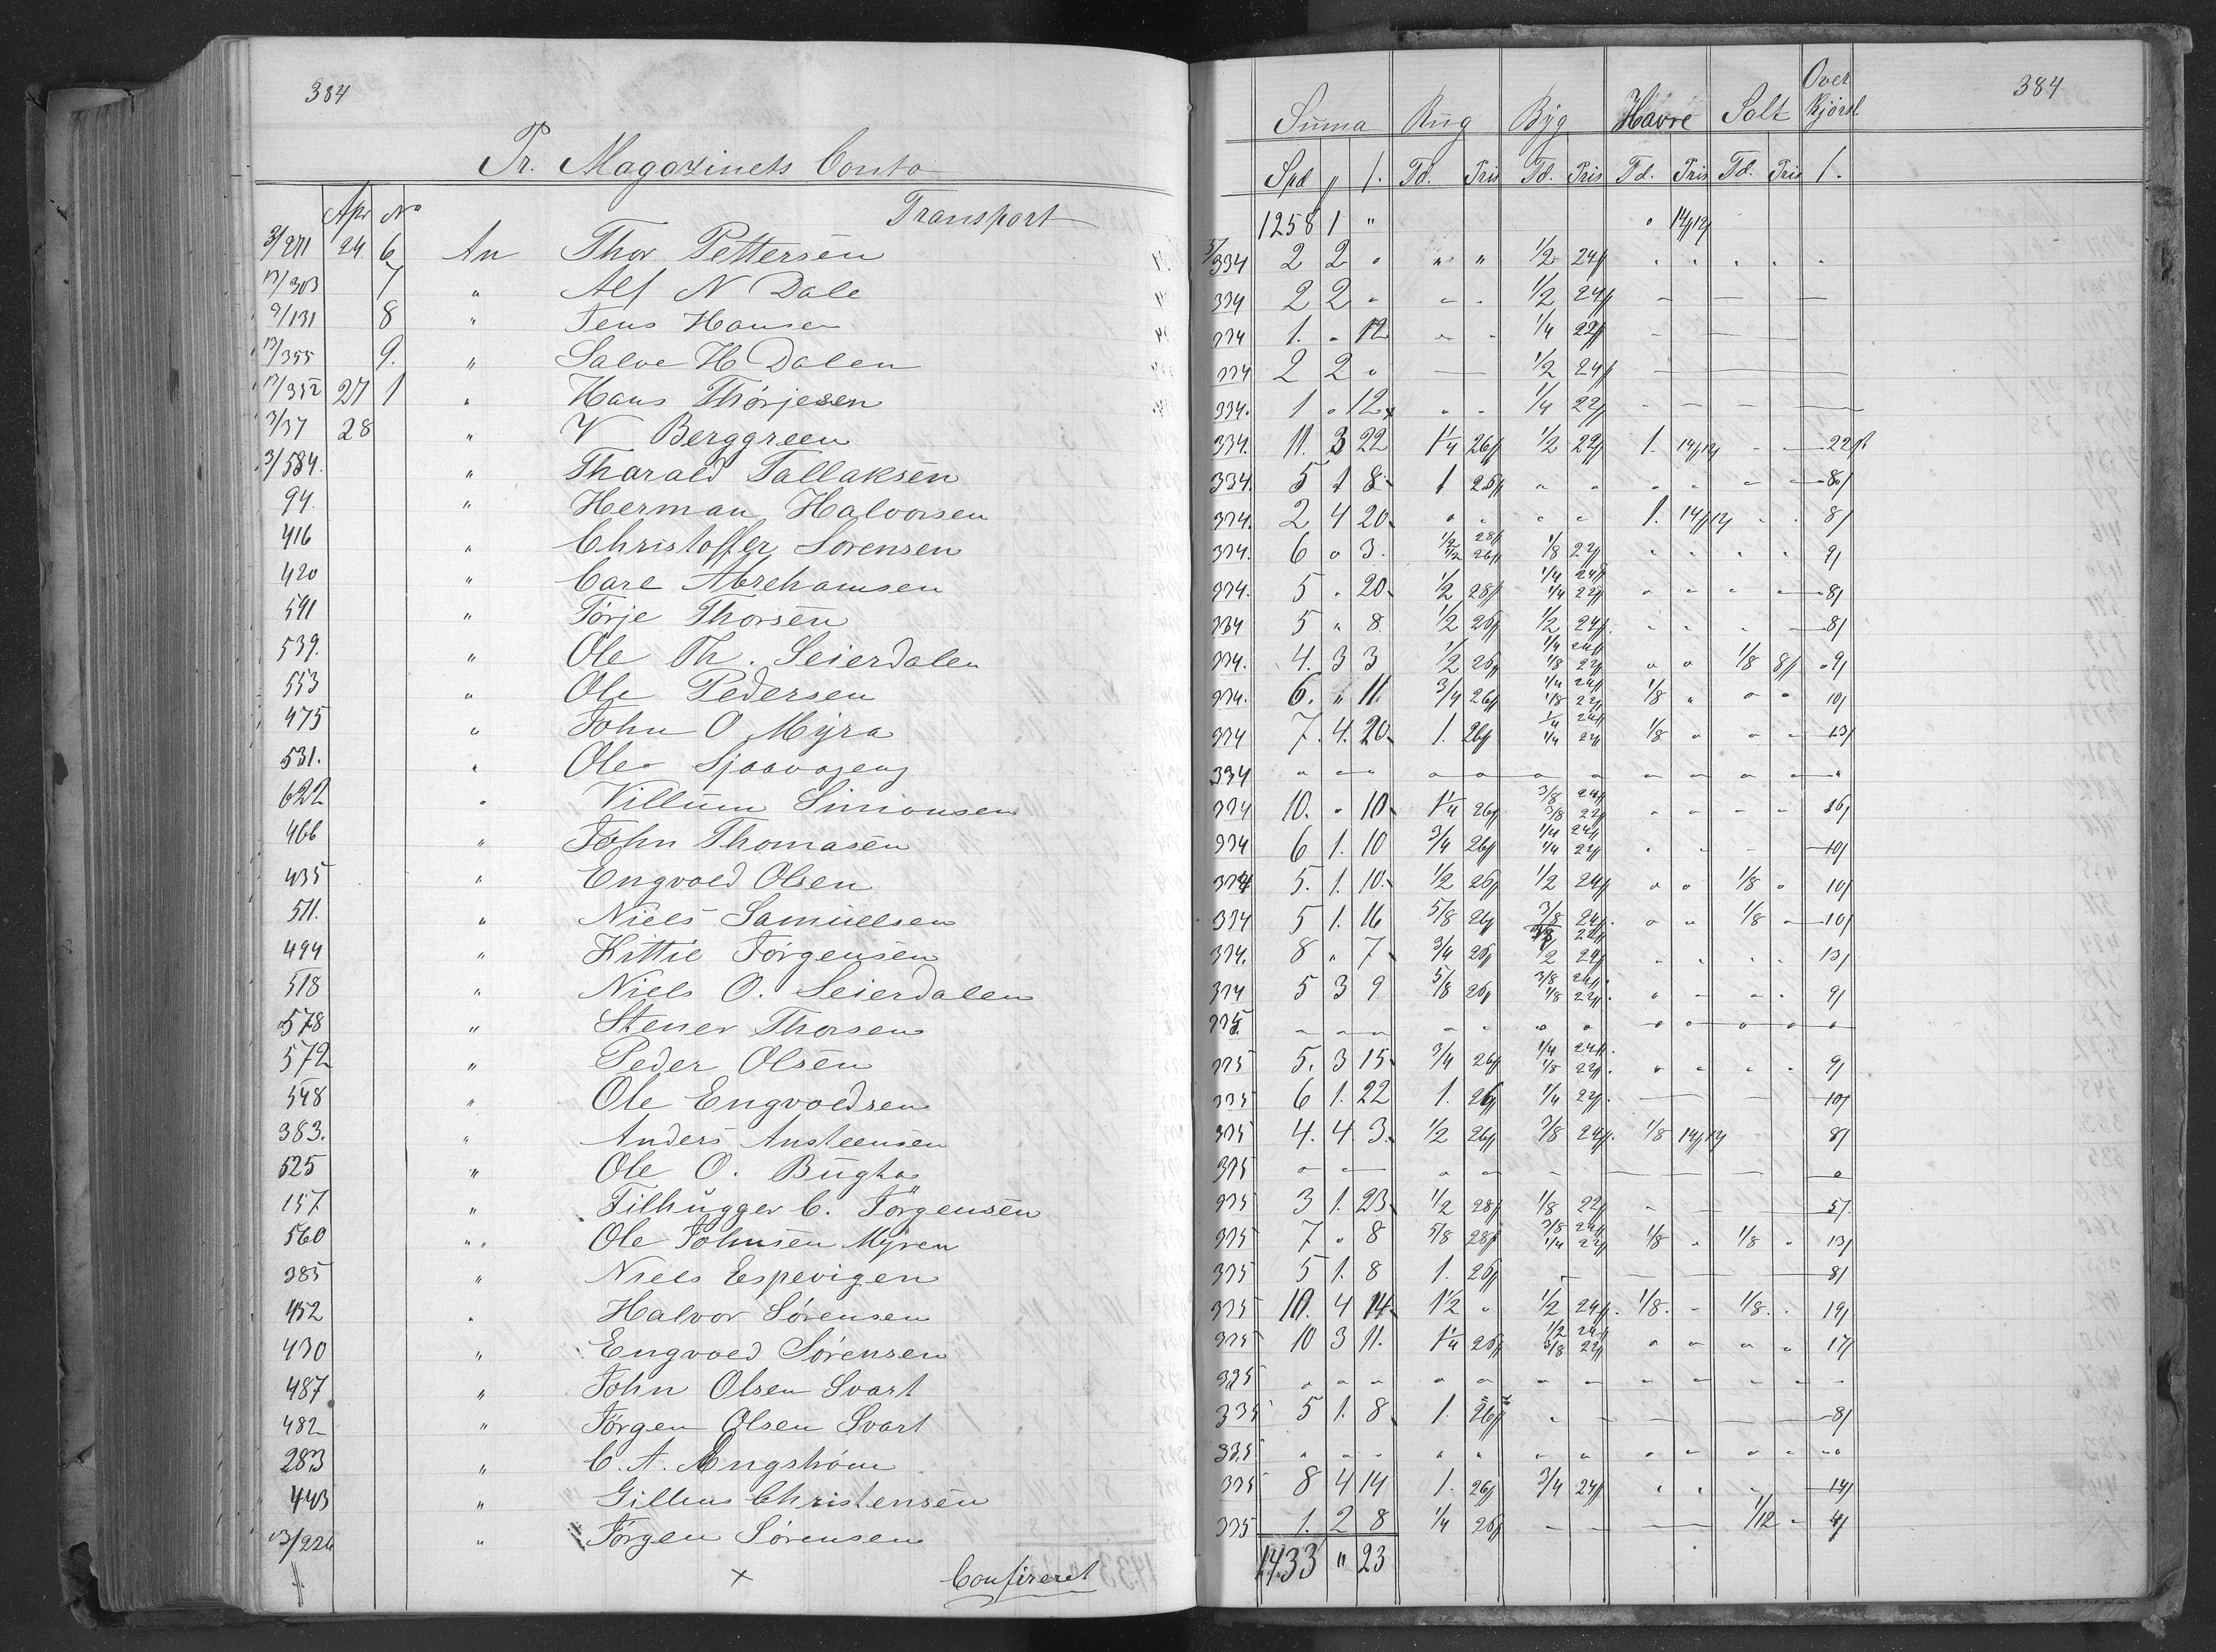 384
Pr. Magazinets Conto
Apr No Transport
3/271 24 6 An Thor Pettersen
13/303 7 " Alf N Dale
9/131 8 " Jens Hansen
13/355 9. " Salve H Dalen
13/352 27 1 " Hans Thorjesen
3/37 28 " V Berggreen
3/584. " Tharald Tallaksen
94. " Herman Halvorsen
416 " Christoffer Sørensen
420 " Carl Abrehamsen
591 " Tørje Thorsen
539. " Ole Th. Seierdalen
553 " Ole Pedersen
475 " John O Myra
531. " Ole
622 " Villum Simonsen
466 " John Thomasen
435 " Engvold Olsen
511. " Niels Samuelsen
494 " Kittil Jørgensen
518 " Niels O. Seierdalen
578 " Stener Thorsen
572 " Peder Olsen
548 " Ole Engvoldsen
383. " Anders Ansteensen
525 " Ole O. Bugta
157 " Filhugger C. Jørgensen
560 " Ole Johnsen Myren
385 " Niels Espevigen
452 " Halvor Sørensen
430 " Engvold Sørensen
487 " John Olsen Svart
482 " Jørgen Olsen Svart
283 " C. A. Engstrøm
443 " Gillius Christensen
13/226 " Jørgen Sørensen
x Confereret
384
Suma Rug Byg Havre Salt Over Kjørsl
Spd // /. Td. Pris Td. Pris Td. Pris Td. Pris /.
1258 1 " 14//12/
5/334 2 2 " " " 1/2 24//
334 2 2 " 1/2 24//
334 1. " 12 1/4 22//
334 2 2 " 1/2 24//
334. 1 " 12 1/4 22//
334. 11. 3 22 1 1/4 26// 1/2 22// 1. 14//12/ 22/
334. 5 1 8 1 26// 8/
334. 2 4 20 1. 14//12/ 8/
334. 6 " 3. 1/2 28// 1/2 26// 1/8 22// 9/
334. 5 " 20 1/2 28// 1/4 24// 1/4 22// 8/
334 5 " 8 1/2 26// 1/2 24// 8/
334. 4. 3 3 1/2 26// 1/4 24// 1/8 22// 1/8 8// 9/
334. 6. " 11. 3/4 26// 1/4 24// 1/8 22// 1/8 " 10/
334 7. 4. 20 1. 26// 1/4 24// 1/4 22// 1/8 " 13/
334
334 10. " 10 1 1/4 26// 3/8 24// 3/8 22// 16/
334 6 1. 10 3/4 26// 1/4 24// 1/4 22// 10/
334 5. 1. 10. 1/2 26// 1/2 24// 1/8 " 10/
334 5 1. 16 5/8 26// 3/8 24// 1/8 10/
334. 8 " 7 3/4 26// 1/2 24// 13/
334 5 3 9 5/8 26// 3/8 24// 1/8 22// 9/
335
335 5. 3 15 3/4 26// 1/4 24// 1/8 22// 9/
335 6 1. 22 1. 26// 1/4 22// 10/
335 4. 4 3. 1/2 26// 3/8 24// 1/8 14//12/ 8/
335
335 3 1. 23 1/2 28// 1/8 22// 5/.
335 7 " 8 5/8 28// 3/8 24// 1/4 22// 1/8 " 1/8 " 13/
335 5 1. 8 1. 26// 8/
335 10. 4 14 1 1/2 " 1/2 24// 1/8. 1/8. 19/
335 10 3 11. 1 1/4 26// 1/2 24// 3/8 22// 17/
335
335 5 1. 8 1. 26// 8/
335
335 8 4 14 1. 26// 3/4 24// 14/
335 1. 2 8 1/4 26// 1/12 4/
1433 " 23